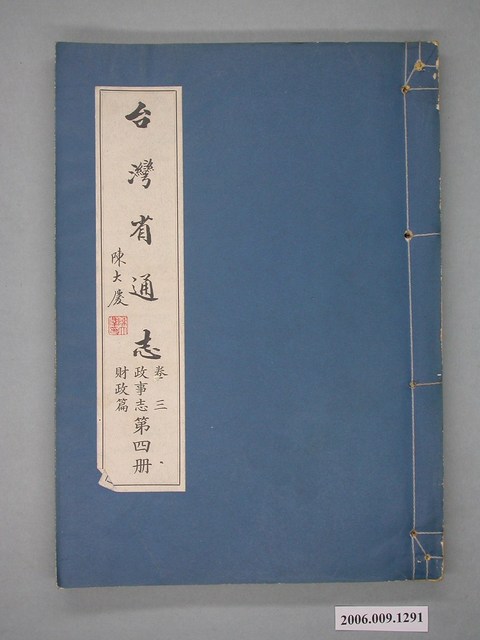 台灣省通志
陳大慶
卷三
政事志
財政篇
第四册
2006.009.1291